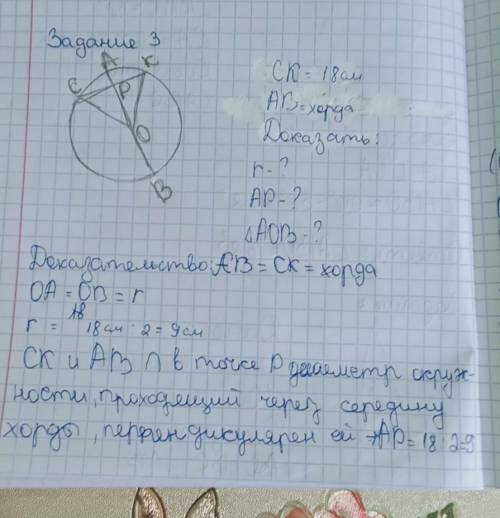 Задание 3
А К
С Р
О
В
СК = 18 см
АВ = хорда
Доказать:
r - ?
АР - ?
△АОВ - ?
Доказательство: АВ = СК = хорда
ОА = ОВ = r
r = 18 см : 2 = 9 см
СК и АВ ∩ в точке Р диаметр окруж-
ности, проходящий через середину
хорды, перпендикулярен ей ⇒ АР = 18 : 2 = 9